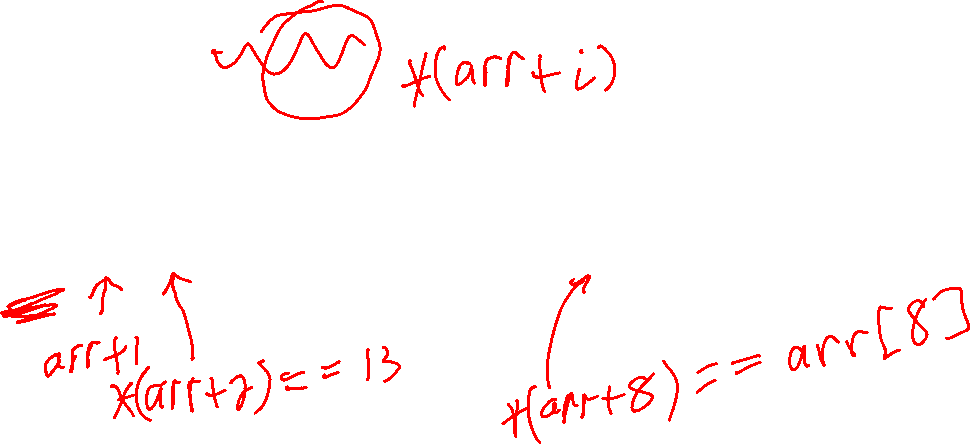 *(arr+i)
arr+1
*(arr+2) == 13
*(arr+8) == arr[8]